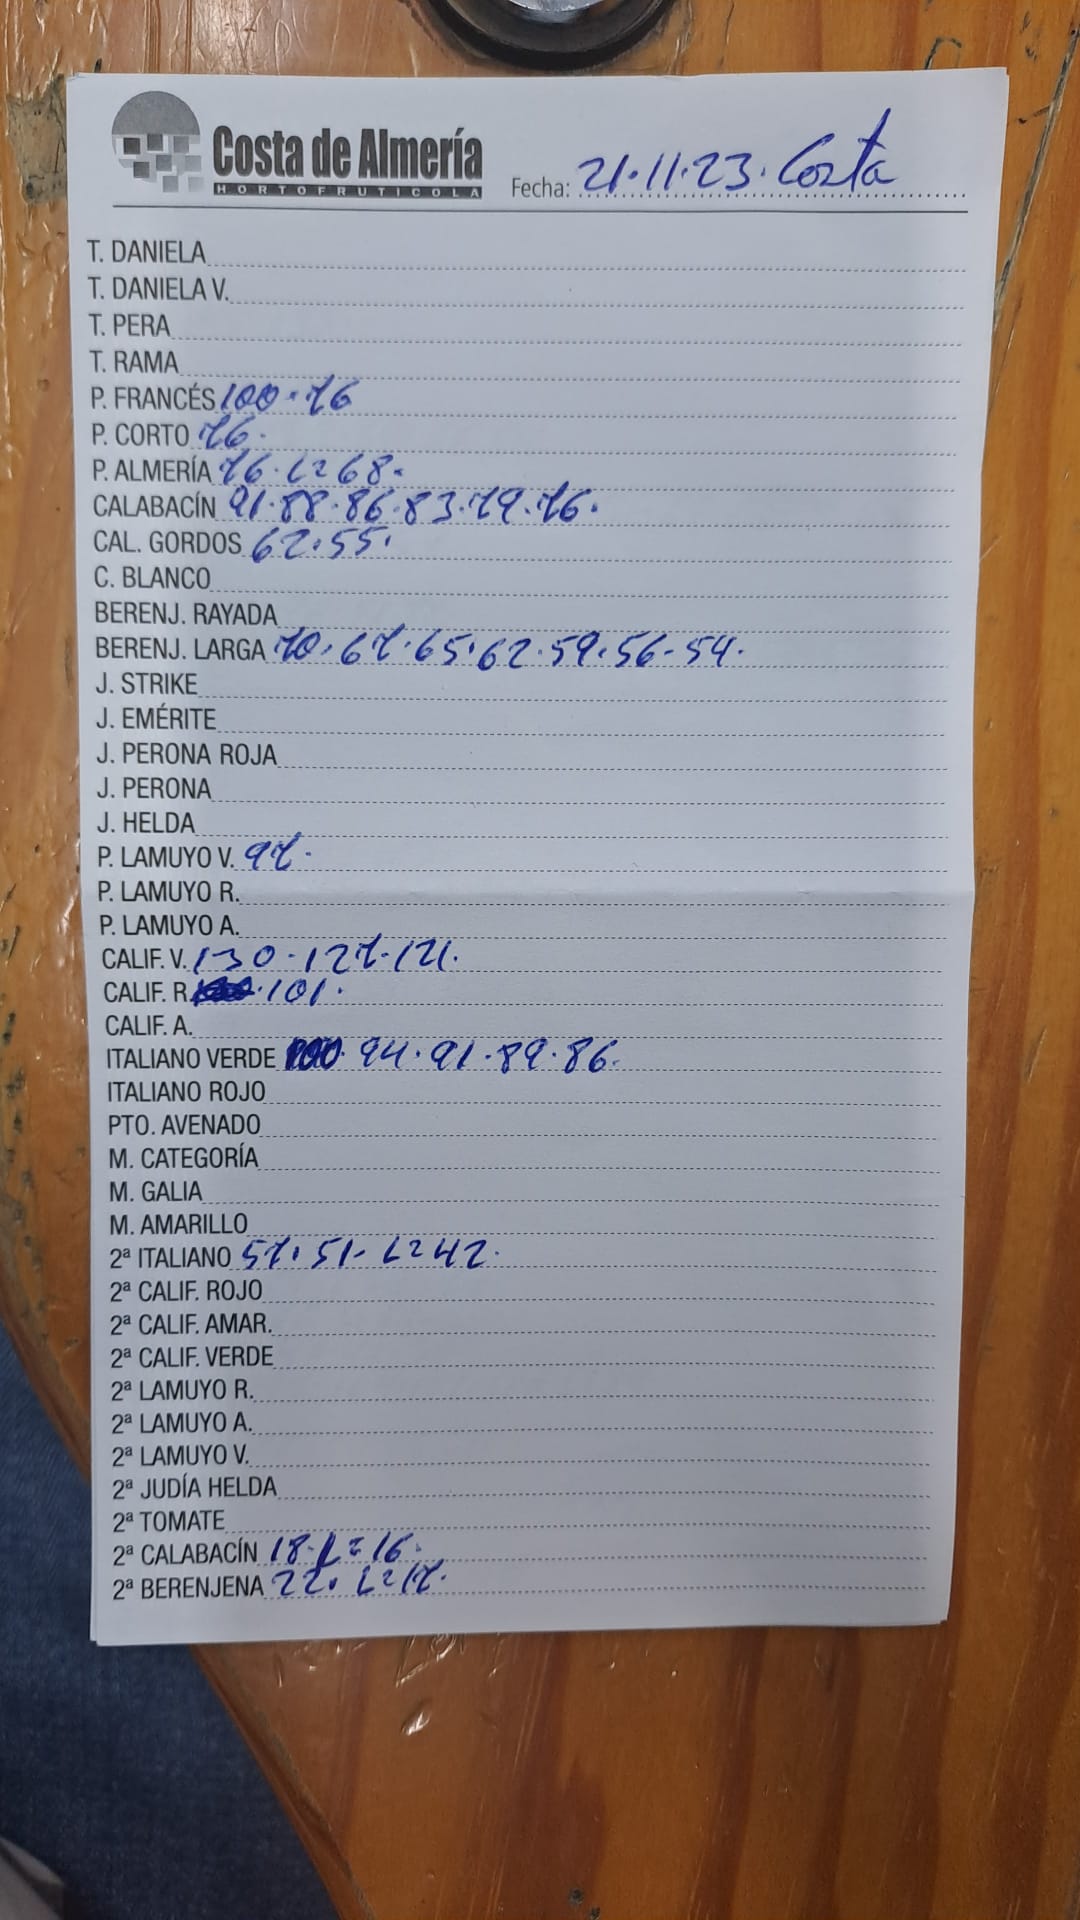 Costa de Almería
HORTOFRUTICOLA
Fecha: 21.11.23. Costa
T. DANIELA
T. DANIELA V.
T. PERA
T. RAMA
P. FRANCÉS 100.76
P. CORTO 76.
P. ALMERÍA 76. L=68.
CALABACÍN 91.88.86.83.79.76.
CAL. GORDOS 62.55.
C. BLANCO
BERENJ. RAYADA
BERENJ. LARGA 70.67.65.62.59.56.54.
J. STRIKE
J. EMÉRITE
J. PERONA ROJA
J. PERONA
J. HELDA
P. LAMUYO V. 97.
P. LAMUYO R.
P. LAMUYO A.
CALIF. V. 130.127.121.
CALIF. R. 101.
CALIF. A.
ITALIANO VERDE 100.94.91.89.86.
ITALIANO ROJO
PTO. AVENADO
M. CATEGORÍA
M. GALIA
M. AMARILLO
2ª ITALIANO 57.51. L=42.
2ª CALIF. ROJO
2ª CALIF. AMAR.
2ª CALIF. VERDE
2ª LAMUYO R.
2ª LAMUYO A.
2ª LAMUYO V.
2ª JUDÍA HELDA
2ª TOMATE
2ª CALABACÍN 18. L=16.
2ª BERENJENA 22. L=17.